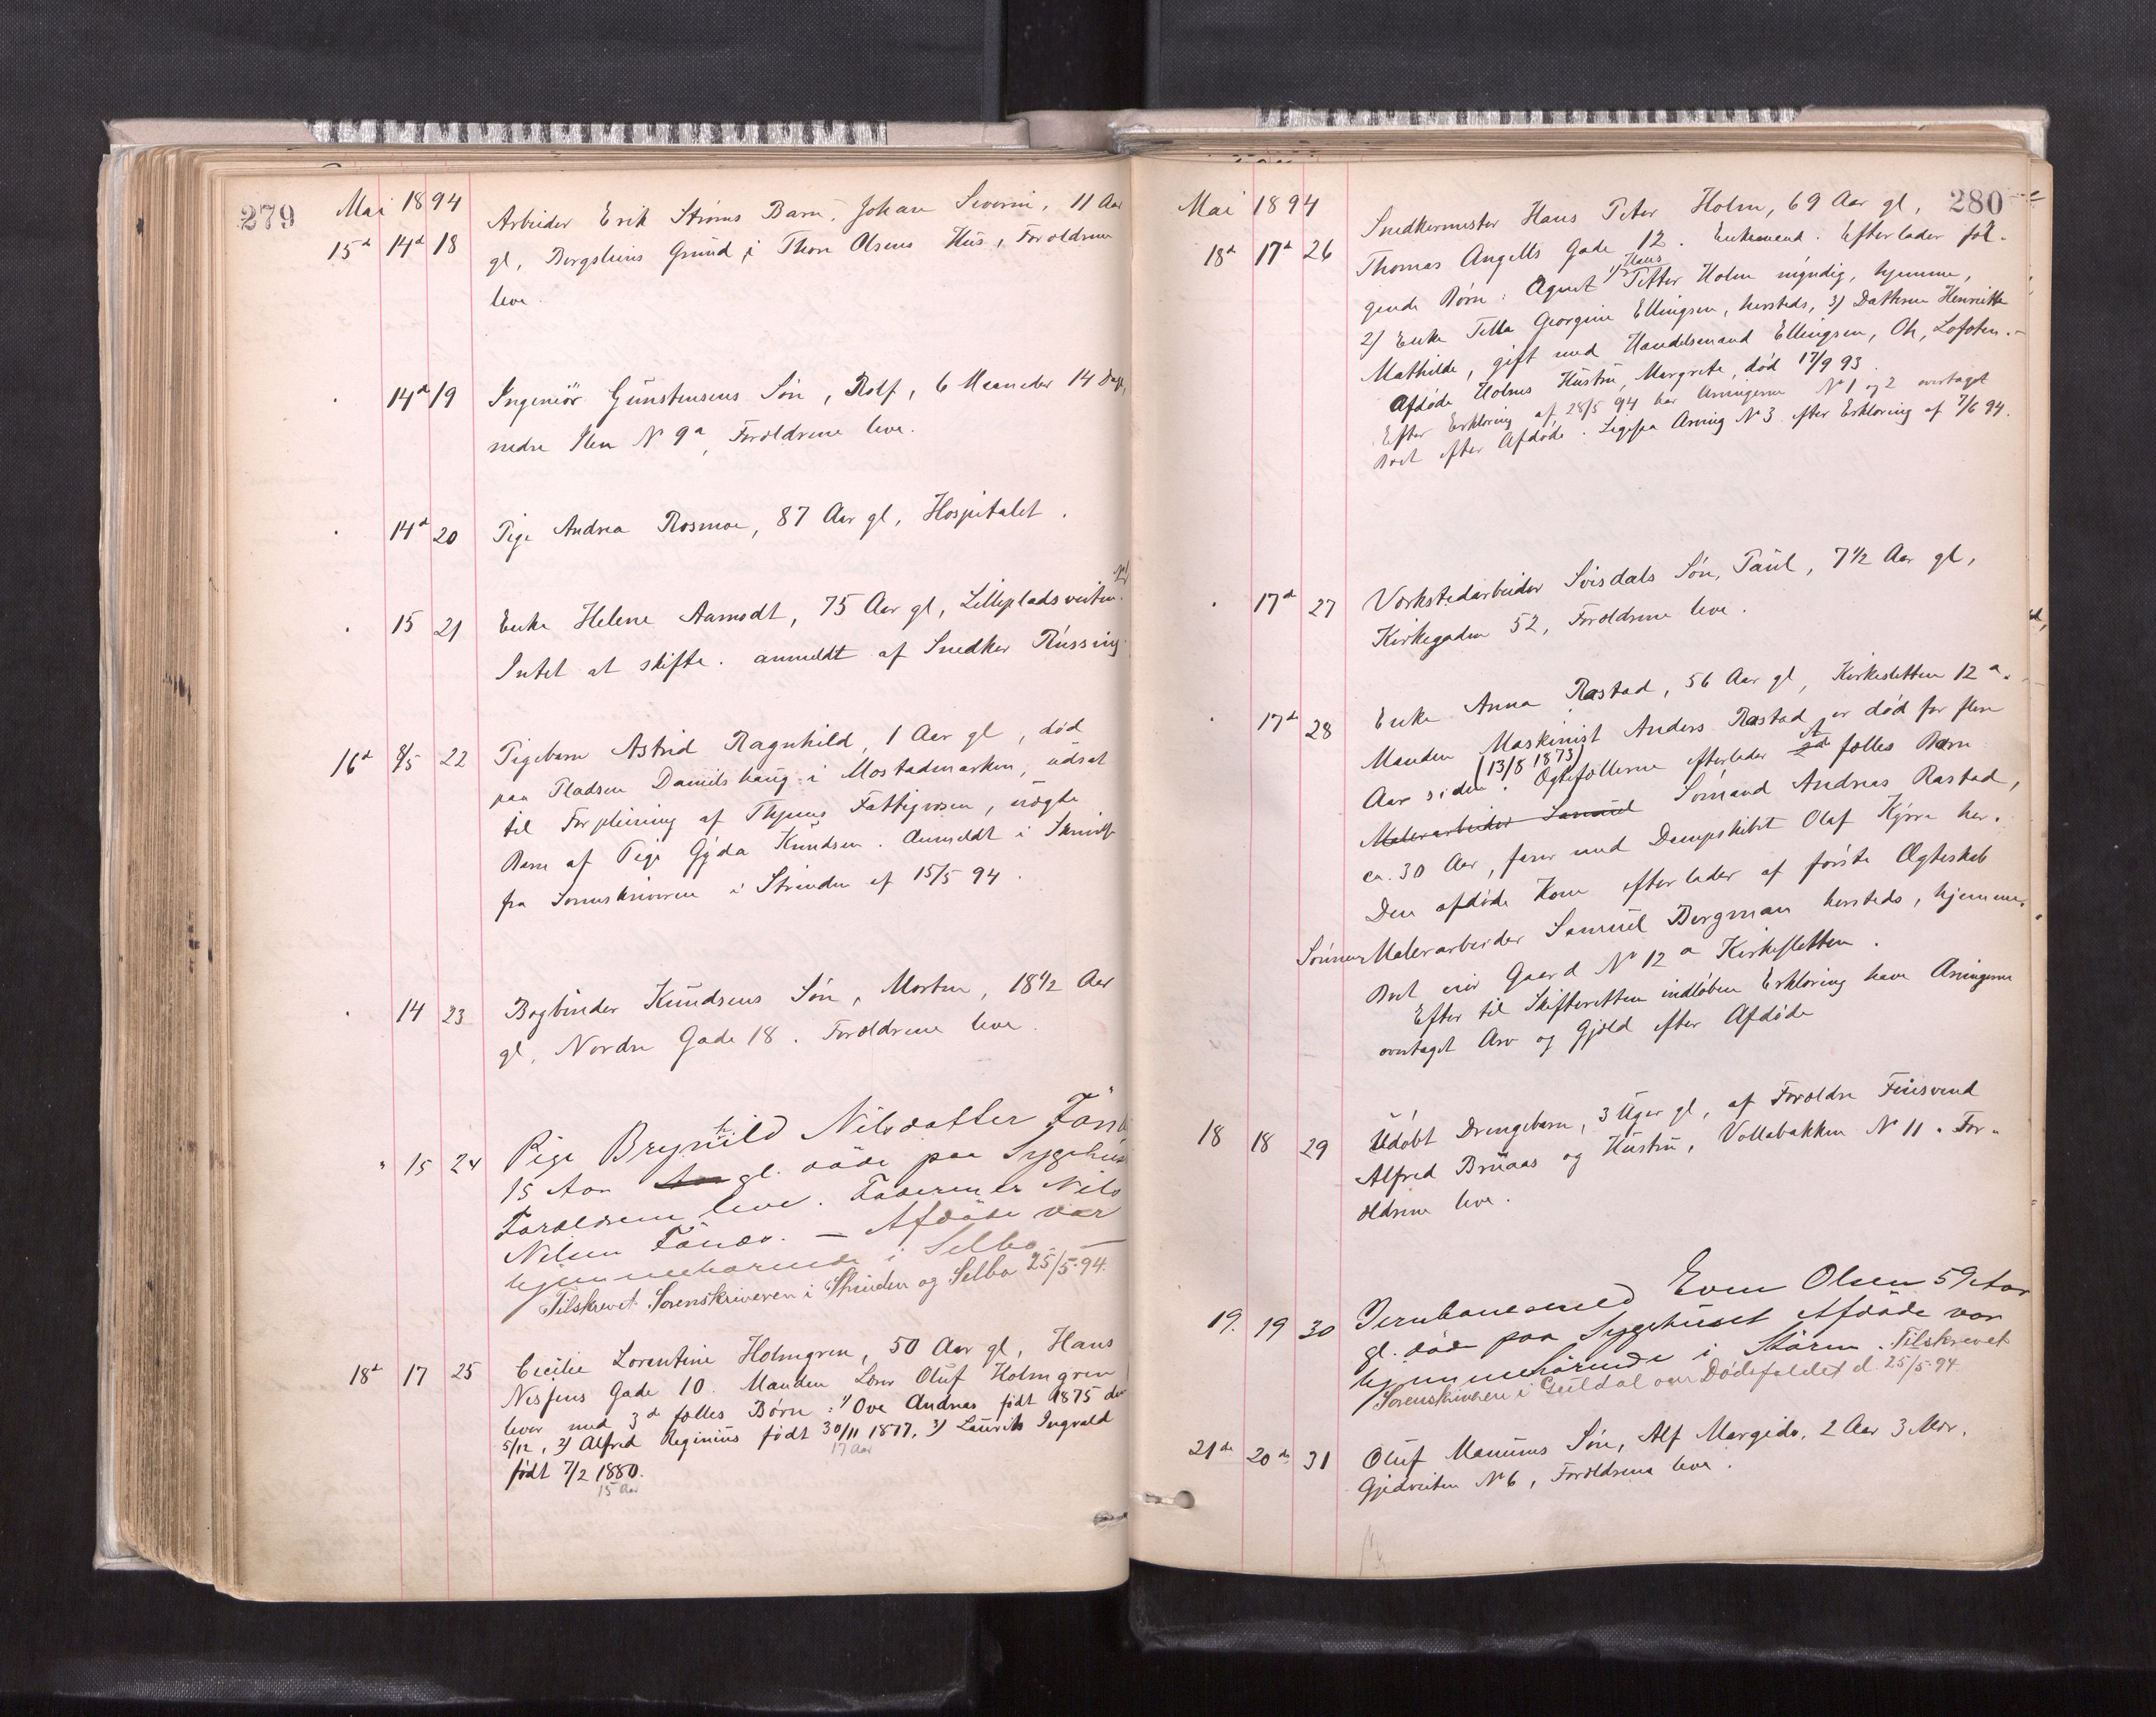 279
Mai 1894
15d 14d 18 Arbeider Erik Strøms Barn, Johan Severin, 11 Aar
gl, Bergsliens Grund, i Thore Olsens Hus, Forældrene
leve.
14d 19 Ingeniør Gunstensens Søn, Rolf, 6 Maaneder 14 Dage,
nedre Ilen No 9a, Forældrene leve.
14d 20 Pige Andrea Rosmoe, 87 Aar gl, Hospitalet.
15 21 Enke Helene Aamodt, 75 Aar gl, Lillepladsveiten
Intet at skifte. anmeldt af Snedker Russing.
16d 8/5 22 Pigebarn Astrid Ragnhild, 1 Aar gl, død
paa Pladsen Danielshaug i Mostadmarken, udsat
til Forpleining af Thjems Fattigvæsen, uægte
Barn af Pige Gyda Knudsen. Anmeldt i Skrivelse
fra Sorenskriveren i Strinden af 15/5 94.
14 23 Bogbinder Knudsens Søn, Morten, 18 1/2 Aar
gl, Nordre Gade 18. Forældrene leve.
" 15 24 Pige Brynhild Nilsdatter
15 Aar gl. døde paa Sygehus
Forældrene leve. Faderen er Nils
Nilsen. — Afdøde var
hjemmehørende i Selbo. —
Tilskrevet Sorenskriveren i Strinden og Selbo 25/5-94.
18d 17 25 Cecilie Lorentine Holmgren, 50 Aar gl, Hans
Nissens Gade 10. Manden Oluf Holmgren
lever med 3de fælles Børn: 1/ Ove Andreas født 1875 den
5/12, 2) Alfred Reginius født 30/11 1877, 3) Laurits Ingvald
17 Aar
født 7/2 1880.
15 Aar
280
Mai 1894
18d 17d 26 Snedkermester Hans Peter Holm, 69 Aar gl,
Thomas Angells Gade 12. Enkemand. Efterlader føl-
gende Børn: Agent 1) Hans Petter Holm myndig, hjemme,
2) Enke Tella Georgine Ellingsen, hersteds, 3) Datteren Henriette
Mathilde, gift med Handelsmand Ellingsen, Lofoten.-
Afdøde Holms Hustru, Margrete, død 17/9 93.
Efter Erklæring af 28/5 94 har Arvingerne No 1 og 2 overtaget
Boet efter Afdøde. Ligesaa Arving No 3 efter Erklæring af 7/6 94.
17d 27 Værkstedarbeider Svisdals Søn, Paul, 7 1/2 Aar gl,
Kirkegaden 52, Forældrene leve.
17d 28 Enke Anna Rastad, 56 Aar gl, Kirkesletten 12a.
Manden Maskinist Anders Rastad er død for flere
Aar siden (13/8 1873). Ægtefællerne efterlader et fælles Barn
Malerarbeider Samuel Sømand Andreas Rastad,
ca. 30 Aar, farer med Dampskibet Olaf Kyrre her.
Den afdøde Kone efterlader af første Ægteskab
Sønnen Malerarbeider Samuel Bergman hersteds, hjemme.
Boet eier Gaard No 12a Kirkesletten.
Efter til Skifteretten indløben Erklæring have Arvingerne
overtaget Arv og Gjæld efter Afdøde
18 18 29 Udøbt Drengebarn, 3 Uger gl, af Forældre
Alfred Bruaas og Hustru, Vollabakken No 11. For-
ældrene leve.
19. 19 30 Jernbanesmed Even Olsen 59 Aar
gl. døde paa Sygehuset Afdøde var
hjemmehørende i Støren. Tilskrevet
Sorenskriveren i Guldal om Dødsfaldet d. 25/5-94.
21de 20de 31 Oluf Manums Søn, Alf Margido, 2 Aar 3 Mdr.
Gjedveiten No 6, Forældrene leve.